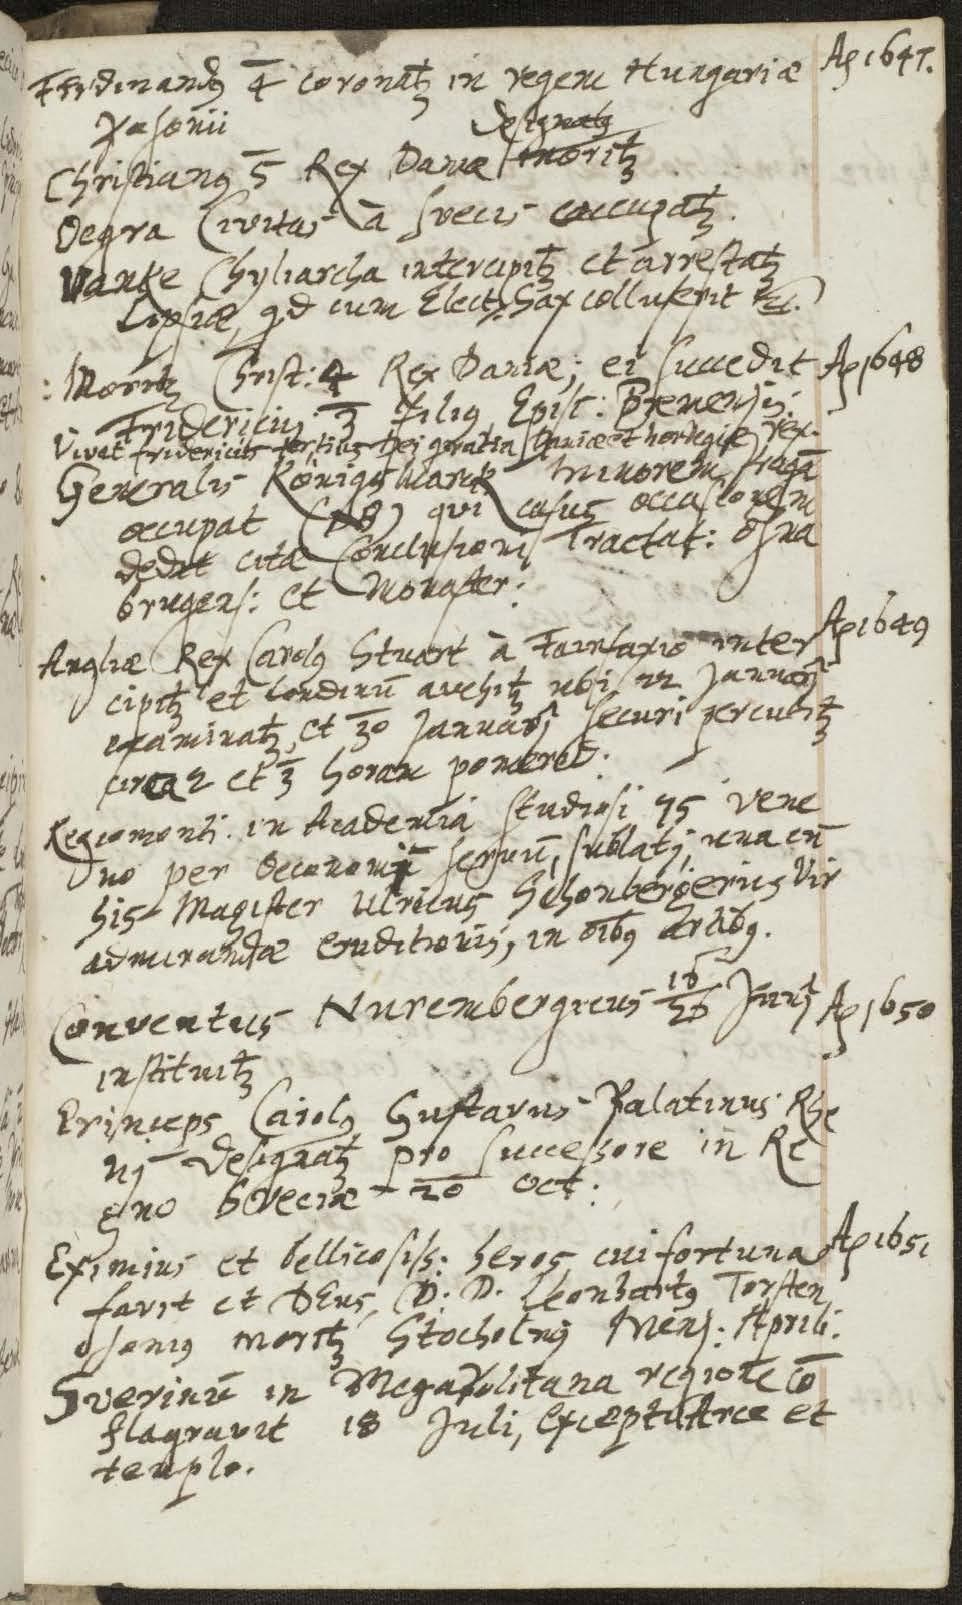 Ferdinandq 4 coronatʒ in regem Hungariæ Aᵒ 1647.
Posonii designatq
Christianq 5 Rex Daniæ moritʒ
Oegra Civitas à Svecis occupatʒ.
Vanke Chyliarcha intercipitʒ et arrestatʒ
Lipsiæ, qd cum Elect: Sax colluserit
: Moritʒ Christ: 4 Rex Daniæ; ei succedit Aᵒ 1648
Fridericus 3 Filiq Episc: Bremensis.
Vivat Fridericus tertius Dei gratia Daniæ et Norvegiæ rex.
Generalis Königsmarck minorem Pragã
occupat qui casus occasionem
dedit citæ Conclusionis Tractat: Osna
brugens: et Monaster:
Angliæ Rex Carolq Stuart à Fairfaxio inter Aᵒ 1649
cipitʒ et Londinũ avehitʒ ubi 22 Januarij
examinatʒ, et 30 Januarij securi percutitʒ
circa 2 et 3 horam pomerid:
Regiomonti in Academia studiosi 75 vene
no per Oeconomi servũ, sublati, una cũ
his Magister Ulricus Schonbergerius Vir
admirandæ eruditionis, in oĩbq Artibq.
Conventus Nurembergicus 16/26 Junij Aᵒ 1650
instituitʒ
Princeps Carolq Gustavus Palatinus Rhe
nj designatʒ pro successore in Re
gno Sveciæ 20 Oct:
Eximius et bellicosiss: heros, cui fortuna Aᵒ 1651
favit et DEus, D. D. Leonhartq Torsten
sonius moritʒ Stocholmj Mens: Aprili.
Sverinũ in Megapolitana regione cõ
flagravit 18 Juli, Excepta Arce et
templo.